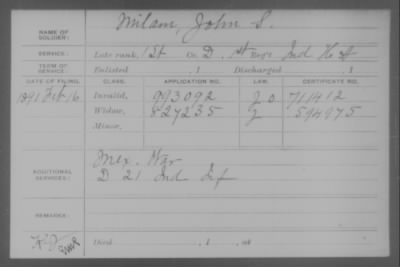 NAME OF SOLDIER: Milam, John S.
SERVICE: Late rank, 1 St Co. D, 1st Reg't Ind H A
TERM OF SERVICE: Enlisted , 1 Discharged , 1
DATE OF FILING. CLASS. APPLICATION NO. LAW. CERTIFICATE NO.
1891 Feb 16 Invalid, 993092 711412
Widow, 827235 594975
Minor,
ADDITIONAL SERVICES: Mex. War
D 21 Ind Inf
REMARKS:
Died , 1 , at